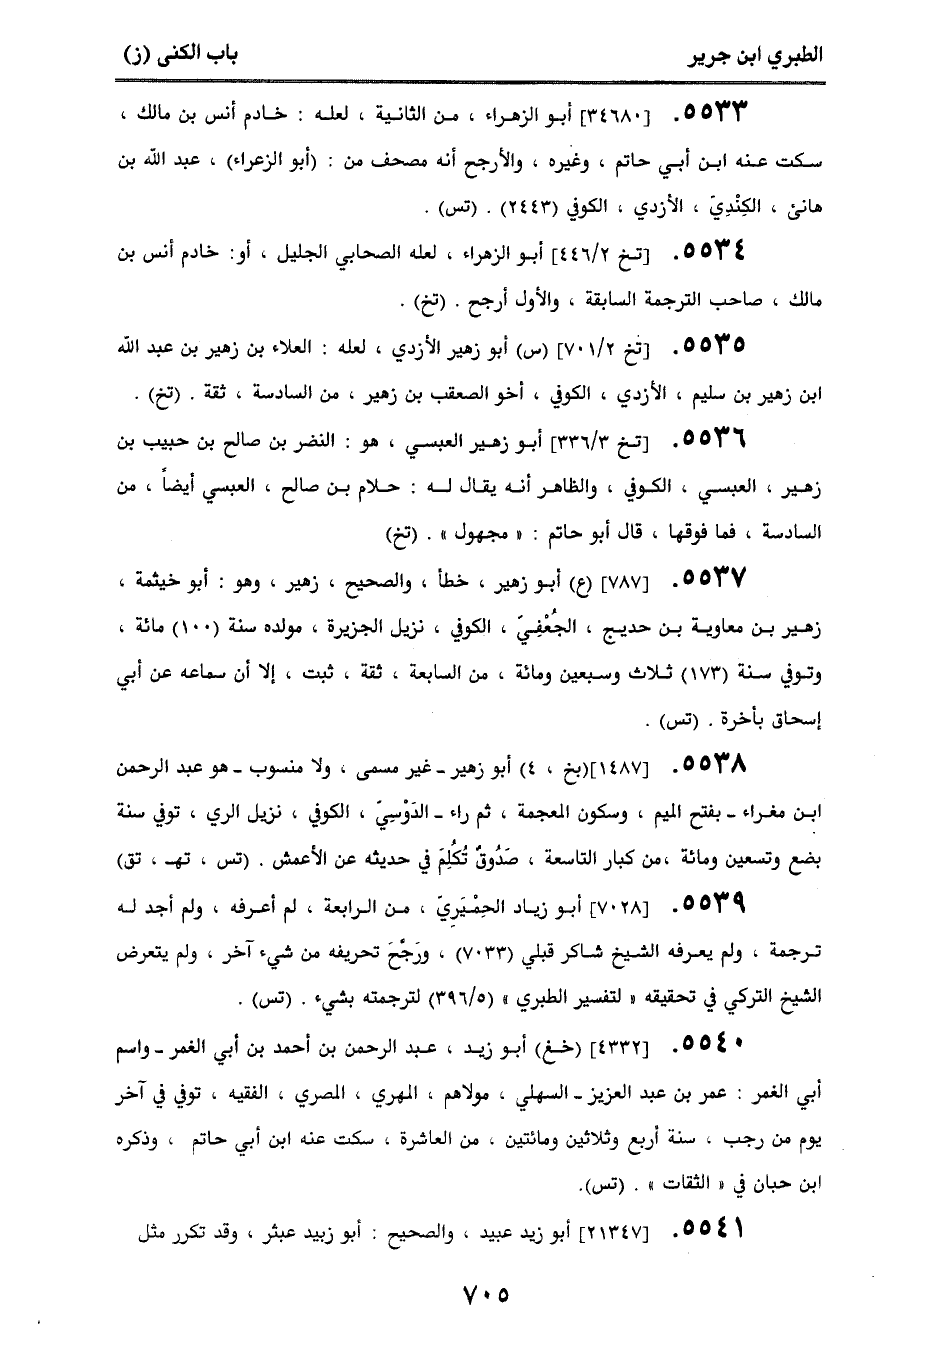 الطبري ابن جرير
باب الكنى (ز)
٥٥٣٣. [٣٤٦٨٠] أبو الزهراء ، من الثانية ، لعله : خادم أنس بن مالك ،
سكت عنه ابن أبي حاتم ، وغيره ، والأرجح أنه مصحف من : (أبو الزعراء) ، عبد الله بن
هانئ ، الكِنْدِيّ ، الأزدي ، الكوفي (٢٤٤٣) . (تس) .
٥٥٣٤. [تخ ٤٤٦/٢] أبو الزهراء ، لعله الصحابي الجليل ، أو: خادم أنس بن
مالك ، صاحب الترجمة السابقة ، والأول أرجح . (تخ) .
٥٥٣٥. [تخ ٧٠١/٢] (س) أبو زهير الأزدي ، لعله : العلاء بن زهير بن عبد الله
ابن زهير بن سليم ، الأزدي ، الكوفي ، أخو الصعقب بن زهير ، من السادسة ، ثقة . (تخ) .
٥٥٣٦. [تخ ٣٣٦/٣] أبو زهير العبسي ، هو : النضر بن صالح بن حبيب بن
زهير ، العبسي ، الكوفي ، والظاهر أنه يقال له : حلام بن صالح ، العبسي أيضاً ، من
السادسة ، فما فوقها ، قال أبو حاتم : « مجهول » . (تخ)
٥٥٣٧. [٧٨٧] (ع) أبو زهير ، خطأ ، والصحيح ، زهير ، وهو : أبو خيثمة ،
زهير بن معاوية بن حديج ، الجُعْفِيّ ، الكوفي ، نزيل الجزيرة ، مولده سنة (١٠٠) مائة ،
وتوفي سنة (١٧٣) ثلاث وسبعين ومائة ، من السابعة ، ثقة ، ثبت ، إلا أن سماعه عن أبي
إسحاق بأخرة . (تس) .
٥٥٣٨. [١٤٨٧](بخ ، ٤) أبو زهير ـ غير مسمى ، ولا منسوب ـ هو عبد الرحمن
ابن مغراء ـ بفتح الميم ، وسكون المعجمة ، ثم راء ـ الدَوْسِيّ ، الكوفي ، نزيل الري ، توفي سنة
بضع وتسعين ومائة ،من كبار التاسعة ، صَدُوقٌ تُكُلِمَ في حديثه عن الأعمش . (تس ، تهـ ، تق)
٥٥٣٩. [٧٠٢٨] أبو زياد الحِمْيَرِيّ ، من الرابعة ، لم أعرفه ، ولم أجد له
ترجمة ، ولم يعرفه الشيخ شاكر قبلي (٧٠٣٣) ، ورَجَّحَ تحريفه من شيء آخر ، ولم يتعرض
الشيخ التركي في تحقيقه « لتفسير الطبري » (٣٩٦/٥) لترجمته بشيء . (تس) .
٥٥٤٠. [٤٣٣٢] (خغ) أبو زيد ، عبد الرحمن بن أحمد بن أبي الغمر ـ واسم
أبي الغمر : عمر بن عبد العزيز ـ السهلي ، مولاهم ، المهري ، المصري ، الفقيه ، توفي في آخر
يوم من رجب ، سنة أربع وثلاثين ومائتين ، من العاشرة ، سكت عنه ابن أبي حاتم ، وذكره
ابن حبان في « الثقات » . (تس).
٥٥٤١. [٢١٣٤٧] أبو زيد عبيد ، والصحيح : أبو زبيد عبثر ، وقد تكرر مثل
٧٠٥